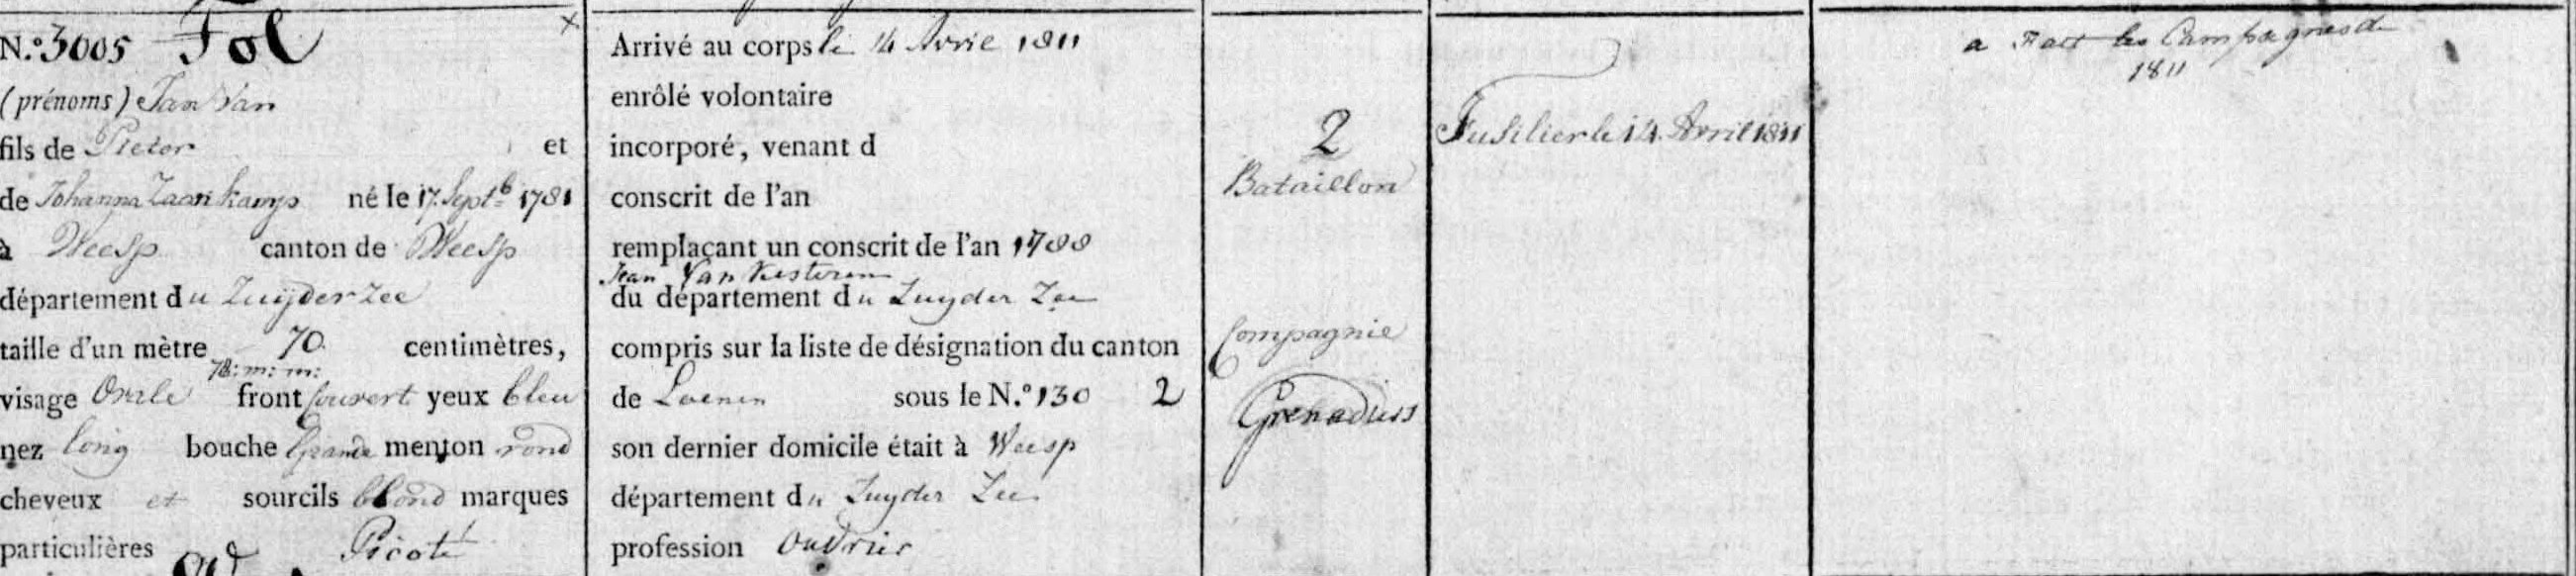 N.º 3005 Tol
(prénoms) Jan Van
fils de Pieter et
de Johanna Zaan kamp né le 17. Septb 1781
à Weesp canton de Weesp
département du Zuijder zee
taille d'un mètre 70 centimètres,
m: m:
visage Ovale front Couvert yeux bleu
nez long bouche Grande menton rond
cheveux et sourcils blond marques
particulières Picoté
Arrivé au corps le 14 Avril 1811
enrôlé volontaire
incorporé, venant d
conscrit de l'an
remplaçant un conscrit de l'an 1788
Jean Van Kesteren
du département du Zuyder Zee
compris sur la liste de désignation du canton
de Loenen sous le N.º 130 2
son dernier domicile était à Weesp
département du Zuyder Zee
profession Ouvrier
2
Bataillon
Compagnie
Grenadiers
Fusilier le 14. Avril 1811
a Fait les Campagnes de
1811